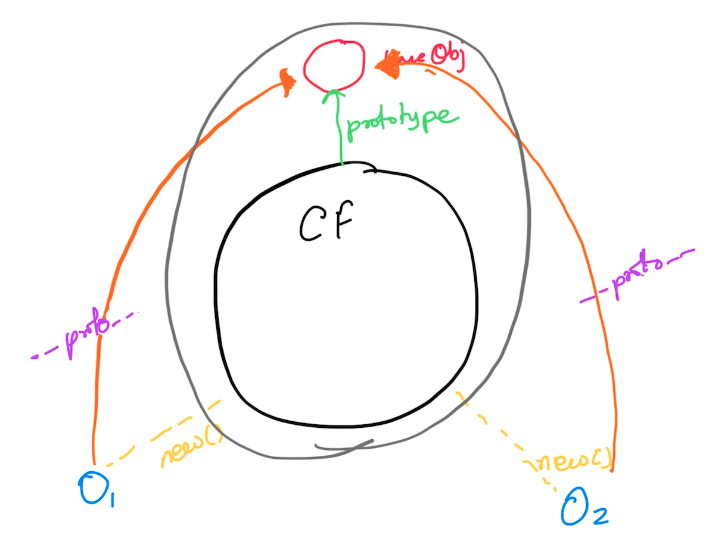 Obj
prototype
CF
--proto--
--proto--
new()
new()
O1
O2